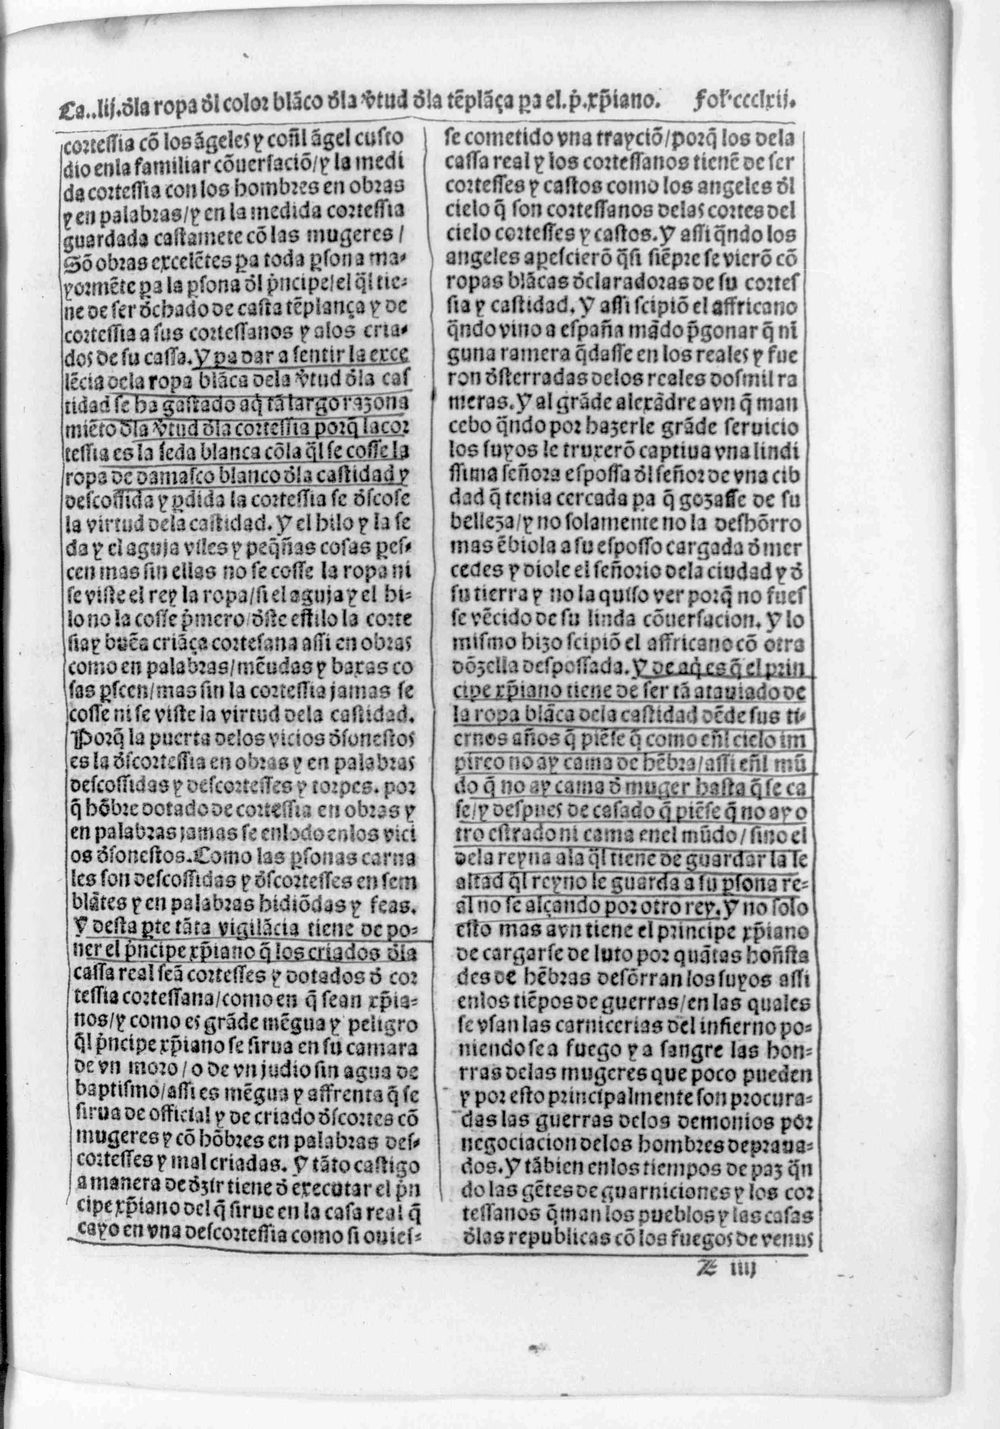 Ca..lij.d̃la ropa d̃l color blãco d̃la v̓tud d̃la tẽplãça pa el.p̃.xp̃iano. fol.ccclxij.
cortessia cõ los ãgeles y con̄l ãgel custo
dio enla familiar cõuersaciõ/y la medi
da cortessia con los hombres en obras
y en palabras/y en la medida cortessia
guardada castamẽte cõ las mugeres/
Sõ obras excelẽtes pa toda p̱sona ma-
yormẽte pa la p̱sona d̃l p̃ncipe/el q̃l tie-
ne de ser d̃chado de casta tẽplança y de
cortessia a sus cortessanos y alos cria-
dos de su cassa. Y pa dar a sentir la exce
lẽcia dela ropa blãca dela v̓tud d̃la cas
tidad se ha gastado aq̃ tã largo razona
miẽto d̃la v̓tud d̃la cortessia porq̃ la cor
tessia es la seda blanca cõla q̃l se cosse la
ropa de damasco blanco d̃la castidad y
descossida y p̱dida la cortessia se d̃scose
la virtud dela castidad. Y el hilo y la se
da y el aguja viles y peq̃ñas cosas pes-
cen mas sin ellas no se cosse la ropa ni
se viste el rey la ropa/si el aguja y el hi-
lo no la cosse p̃mero/d̃ste estilo la corte
sia y buẽa criãça cortesana assi en obras
como en palabras/mẽudas y baxas co
sas p̱scen/mas sin la cortessia jamas se
cosse ni se viste la virtud dela castidad.
Porq̃ la puerta delos vicios d̃sonestos
es la d̃scortessia en obras y en palabras
descossidas y descortesses y torpes. por
q̃ hõbre dotado de cortessia en obras y
en palabras jamas se enlodo enlos vici
os d̃sonestos. Como las p̱sonas carna
les son descossidas y d̃scortesses en sem
blãtes y en palabras hidiõdas y feas.
Y desta p̱te tãta vigilãcia tiene de po-
ner el p̃ncipe xp̃iano q̃ los criados d̃la
cassa real seã cortesses y dotados d̃ cor
tessia cortessana/como en q̃ sean xp̃ia-
nos/y como es grãde mẽgua y peligro
q̃l p̃ncipe xp̃iano se sirua en su camara
de vn moro/o de vn judio sin agua de
baptismo/assi es mẽgua y affrenta q̃ se
sirua de official y de criado d̃scortes cõ
mugeres y cõ hõbres en palabras des-
cortesses y mal criadas. Y tãto castigo
a manera de d̃zir tiene d̃ executar el p̃n
cipe xp̃iano del q̃ sirue en la casa real q̃
cayo en vna descortessia como si ouies-
se cometido vna trayciõ/porq̃ los dela
cassa real y los cortessanos tienẽ de ser
cortesses y castos como los angeles d̃l
cielo q̃ son cortessanos delas cortes del
cielo cortesses y castos. Y assi q̃ndo los
angeles apescierõ q̃si siẽpre se vierõ cõ
ropas blãcas d̃claradoras de su cortes
sia y castidad. Y assi scipiõ el affricano
q̃ndo vino a españa mãdo p̃gonar q̃ ni
guna ramera q̃dasse en los reales y fue
ron d̃sterradas delos reales dos mil ra
meras. Y al grãde alexãdre avn q̃ man
cebo q̃ndo por hazerle grãde seruicio
los suyos le truxerõ captiua vna lindi
ssima señora espossa d̃l señor de vna cib
dad q̃ tenia cercada pa q̃ gozasse de su
belleza/y no solamente no la deshõrro
mas ẽbiola a su esposso cargada d̃ mer
cedes y diole el señorio dela ciudad y d̃
su tierra y no la quiso ver porq̃ no fues
se vẽcido de su linda cõuersacion. Y lo
mismo hizo scipiõ el affricano cõ otra
dõzella despossada. Y de aq̃ es q̃ el prin
cipe xp̃iano tiene de ser tã atauiado de
la ropa blãca dela castidad dẽde sus ti-
ernos años q̃ piẽse q̃ como en̄l cielo im
pireo no ay cama de hẽbra/assi en̄l mũ
do q̃ no ay cama d̃ muger hasta q̃ se ca
se/y despues de casado q̃ piẽse q̃ no ay o
tro estrado ni cama enel mũdo/sino el
dela reyna ala q̃l tiene de guardar la le
altad q̃l reyno le guarda a su p̱sona re-
al no se alçando por otro rey. Y no solo
esto mas avn tiene el principe xp̃iano
de cargarse de luto por quãtas hon̄sta
des de hẽbras desõrran los suyos assi
enlos tiẽpos de guerras/en las quales
se vsan las carnicerias del infierno po-
niendo se a fuego y a sangre las hon-
rras delas mugeres que poco pueden
y por esto principalmente son procura-
das las guerras delos demonios por
negociacion delos hombres depraua-
dos. Y tãbien enlos tiempos de paz q̃n
do las gẽtes de guarniciones y los cor
tessanos q̃man los pueblos y las casas
d̃las republicas cõ los fuegos de venus
Z iiij